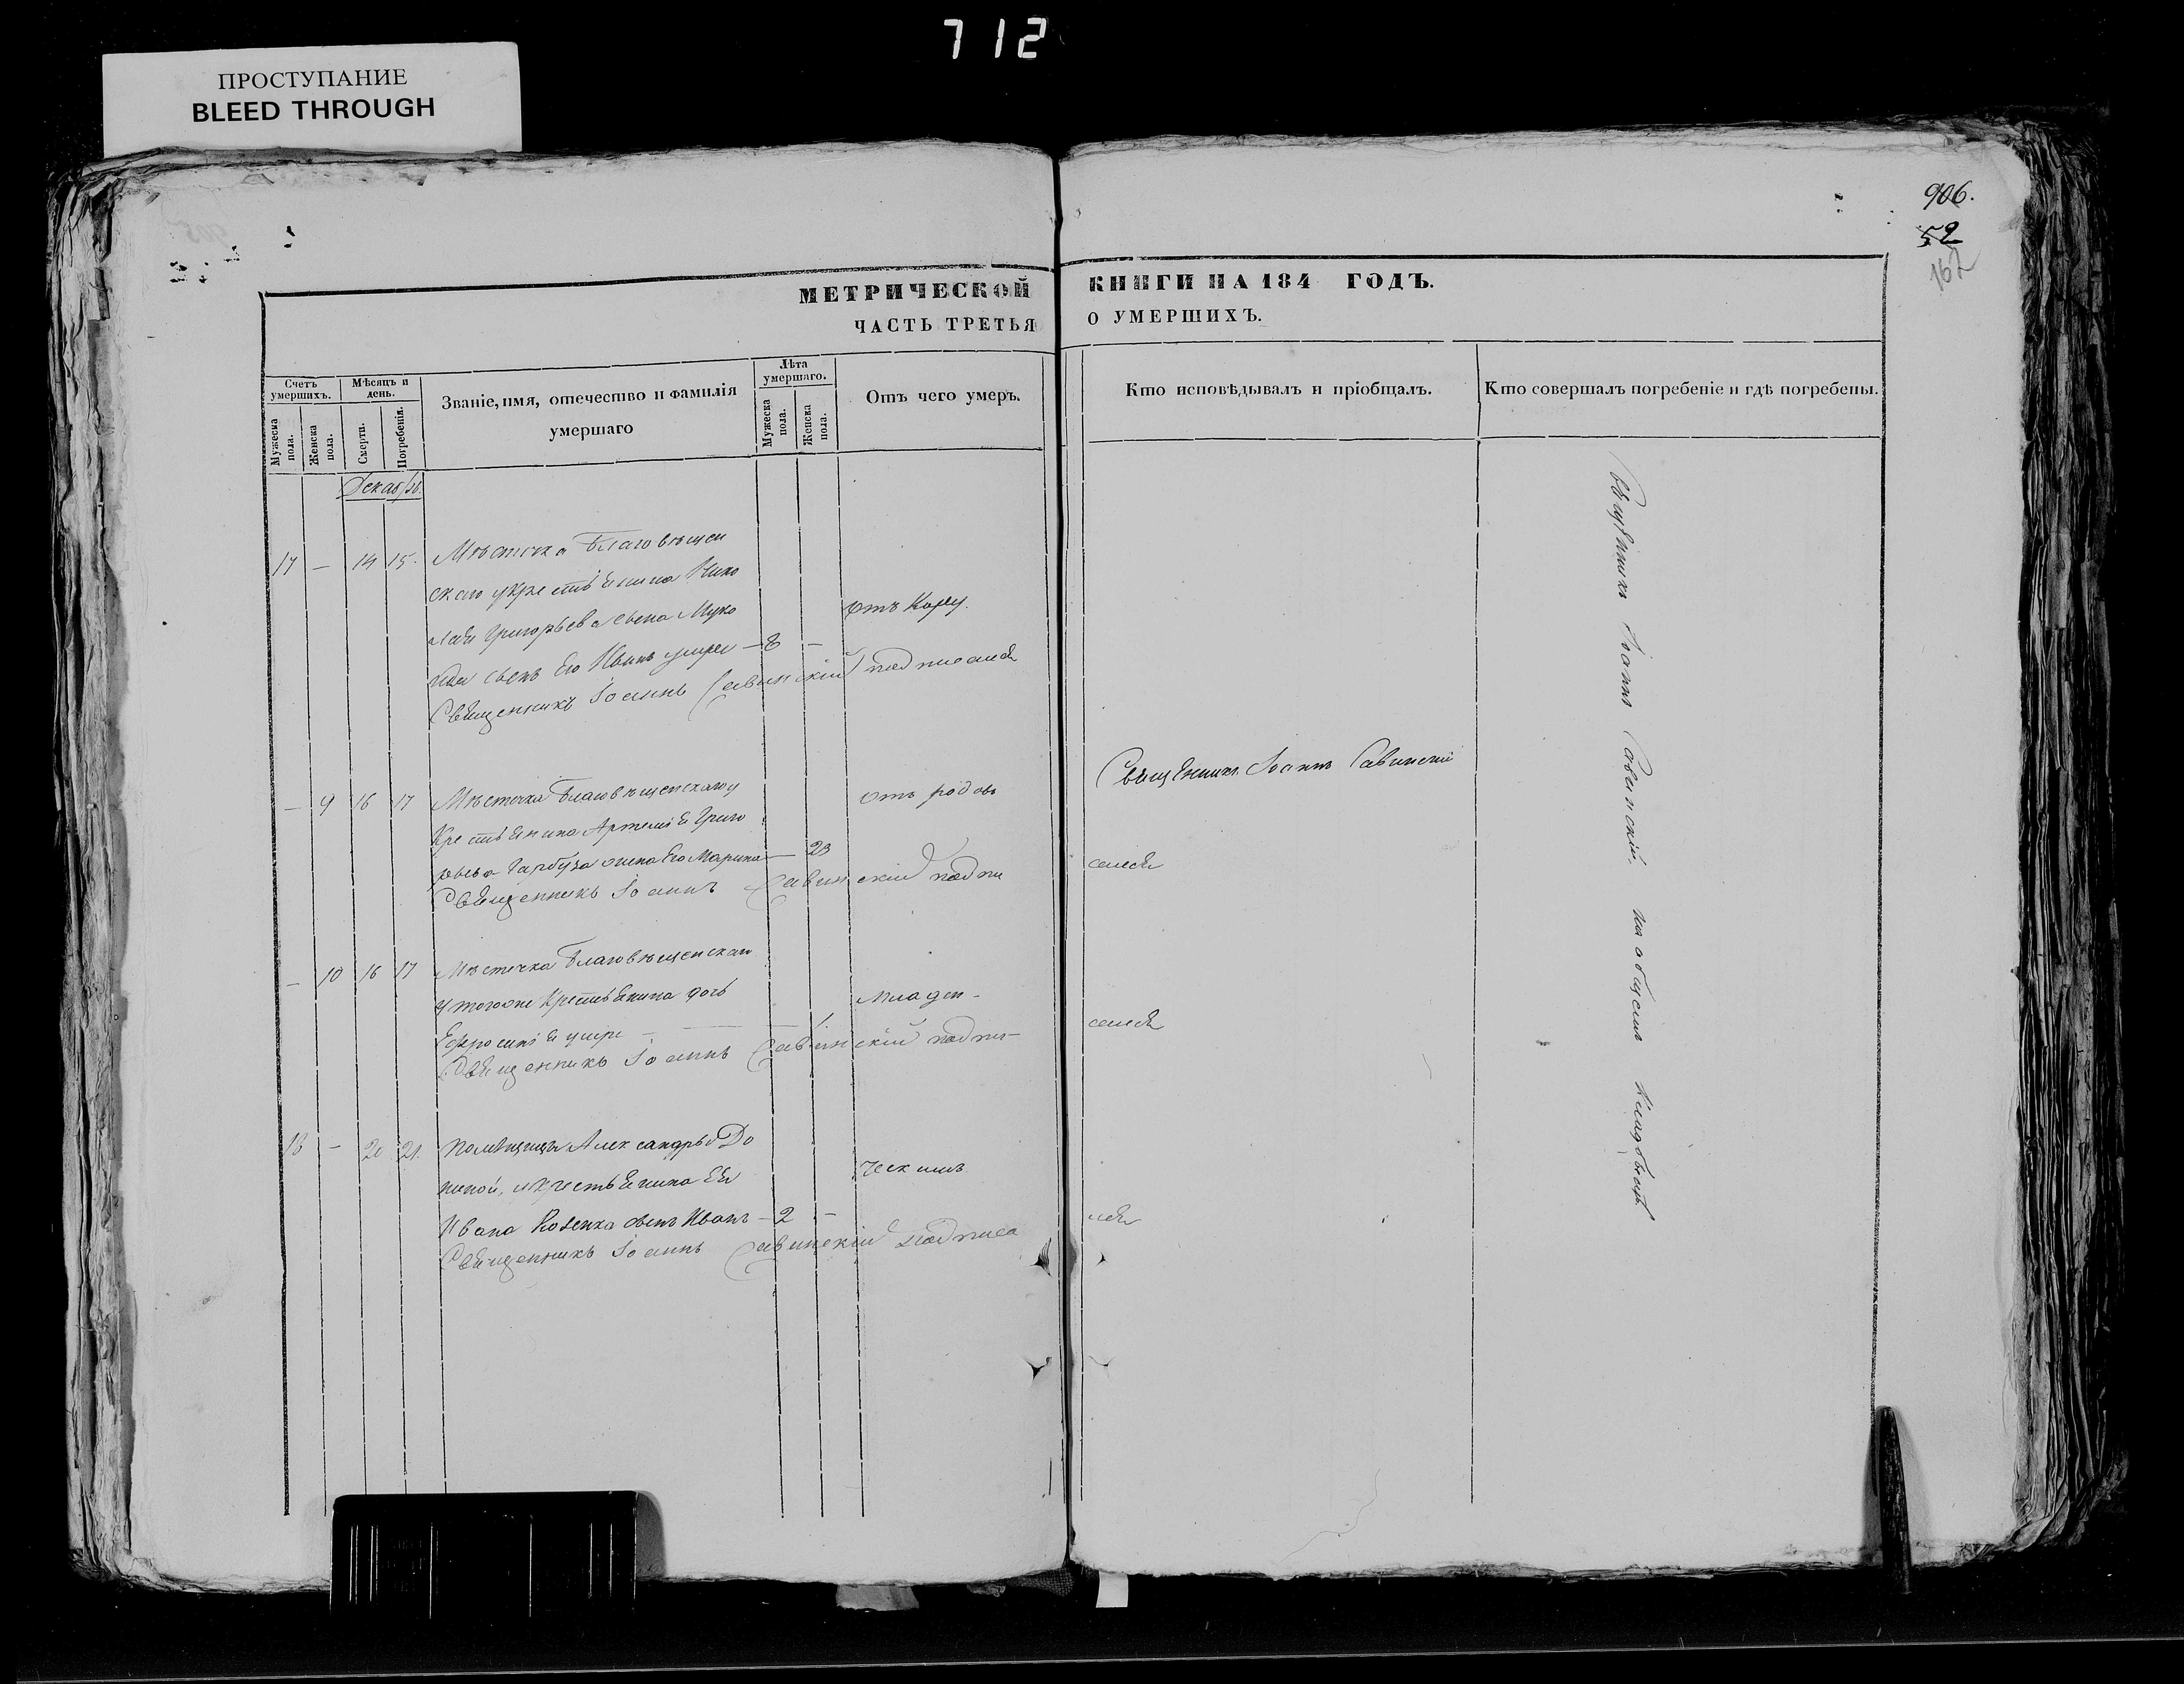 712
ПРОСТУПАНИЕ
BLEED THROUGH
906.
52
162
МЕТРИЧЕСКОЙ КНИГИ НА 184 ГОДЪ.
ЧАСТЬ ТРЕТЬЯ О УМЕРШИХЪ.
Счетъ умершихъ.
Мужеска пола.
Женска пола.
Мѣсяцъ и день.
Смерти.
Погребенія.
Званіе, имя, отечество и фамилія умершаго
Лѣта умершаго.
Мужеска пола.
Женска пола.
Отъ чего умеръ.
Кто исповѣдывалъ и пріобщалъ.
Кто совершалъ погребеніе и гдѣ погребены.
Декабрь.
17 — 14 15. Мѣстечка Благовѣщен
скаго крестьянина Нико
лая Григорьева сына Муко
сынъ Его Иванъ умре — 8 — отъ Кору.
Священникъ Іоаннъ Савинскій подписался
— 9 16 17 Мѣстечка Благовѣщенскаго у отъ родовъ
Крестьянина Артемія Григо Священникъ Іоаннъ Савинскій
рьева Гарбуза жена Его Марина — 23
Священникъ Іоаннъ Савинскій подпи сался
— 10 16 17 Мѣстечка Благовѣщенскаго
у тогоже Крестьянина дочь младен-
Ефросинія умре — — 1
Священникъ Іоаннъ Савинскій подпи- сался
18 — 20 21. помѣщицы Александры До
ниной, крестьянина Ея
Ивана сынъ Иванъ — 2 —
Священникъ Іоаннъ Савинскій подписа лся
Священникъ Іоаннъ Савинскій. на общемъ Кладбищѣ.